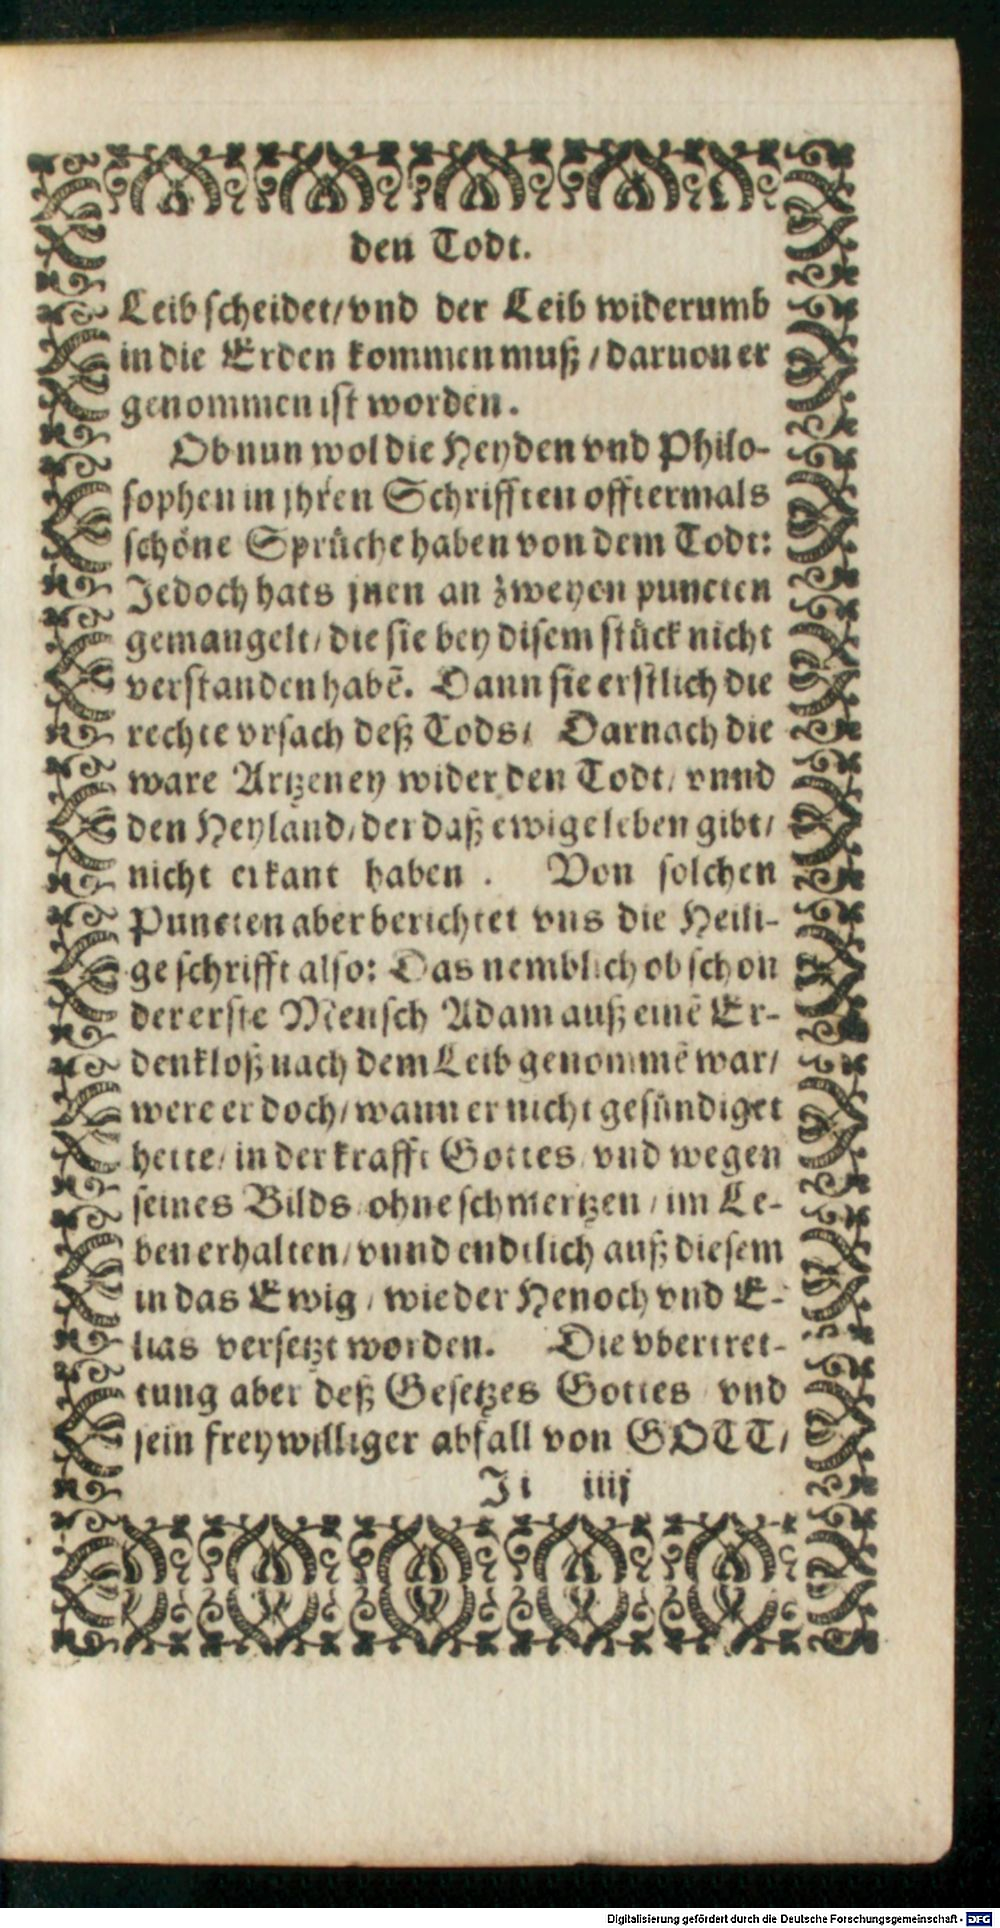 den Todt.
Leib scheidet/ vnd der Leib widerumb
in die Erden kommen muß / daruon er
genommen ist worden.
Ob nun wol die Heyden vnd Philo-
sophen in jhren Schrifften offtermals
schöne Sprüche haben von dem Todt:
Jedoch hats jnen an zweyen puncten
gemangelt/ die sie bey disem stück nicht
verstanden habẽ. Dann sie erstlich die
rechte vrsach deß Tods/ Darnach die
ware Artzeney wider den Todt/ vnnd
den Heyland/ der daß ewige leben gibt/
nicht erkant haben . Von solchen
Puncten aber berichtet vns die Heili-
ge schrifft also: Das nemblich ob schon
der erste Mensch Adam auß einẽ Er-
denkloß nach dem Leib genommẽ war/
were er doch/ wann er nicht gesündiget
hette/ in der krafft Gottes/ vnd wegen
seines Bilds/ ohne schmertzen / im Le-
ben erhalten/ vnnd endtlich auß diesem
in das Ewig / wie der Henoch vnd E-
lias versetzt worden. Die vbertret-
tung aber deß Gesetzes Gottes / vnd
sein freywilliger abfall von GOTT/
Ji iiij
Digitalisierung gefördert durch die Deutsche Forschungsgemeinschaft - DFG